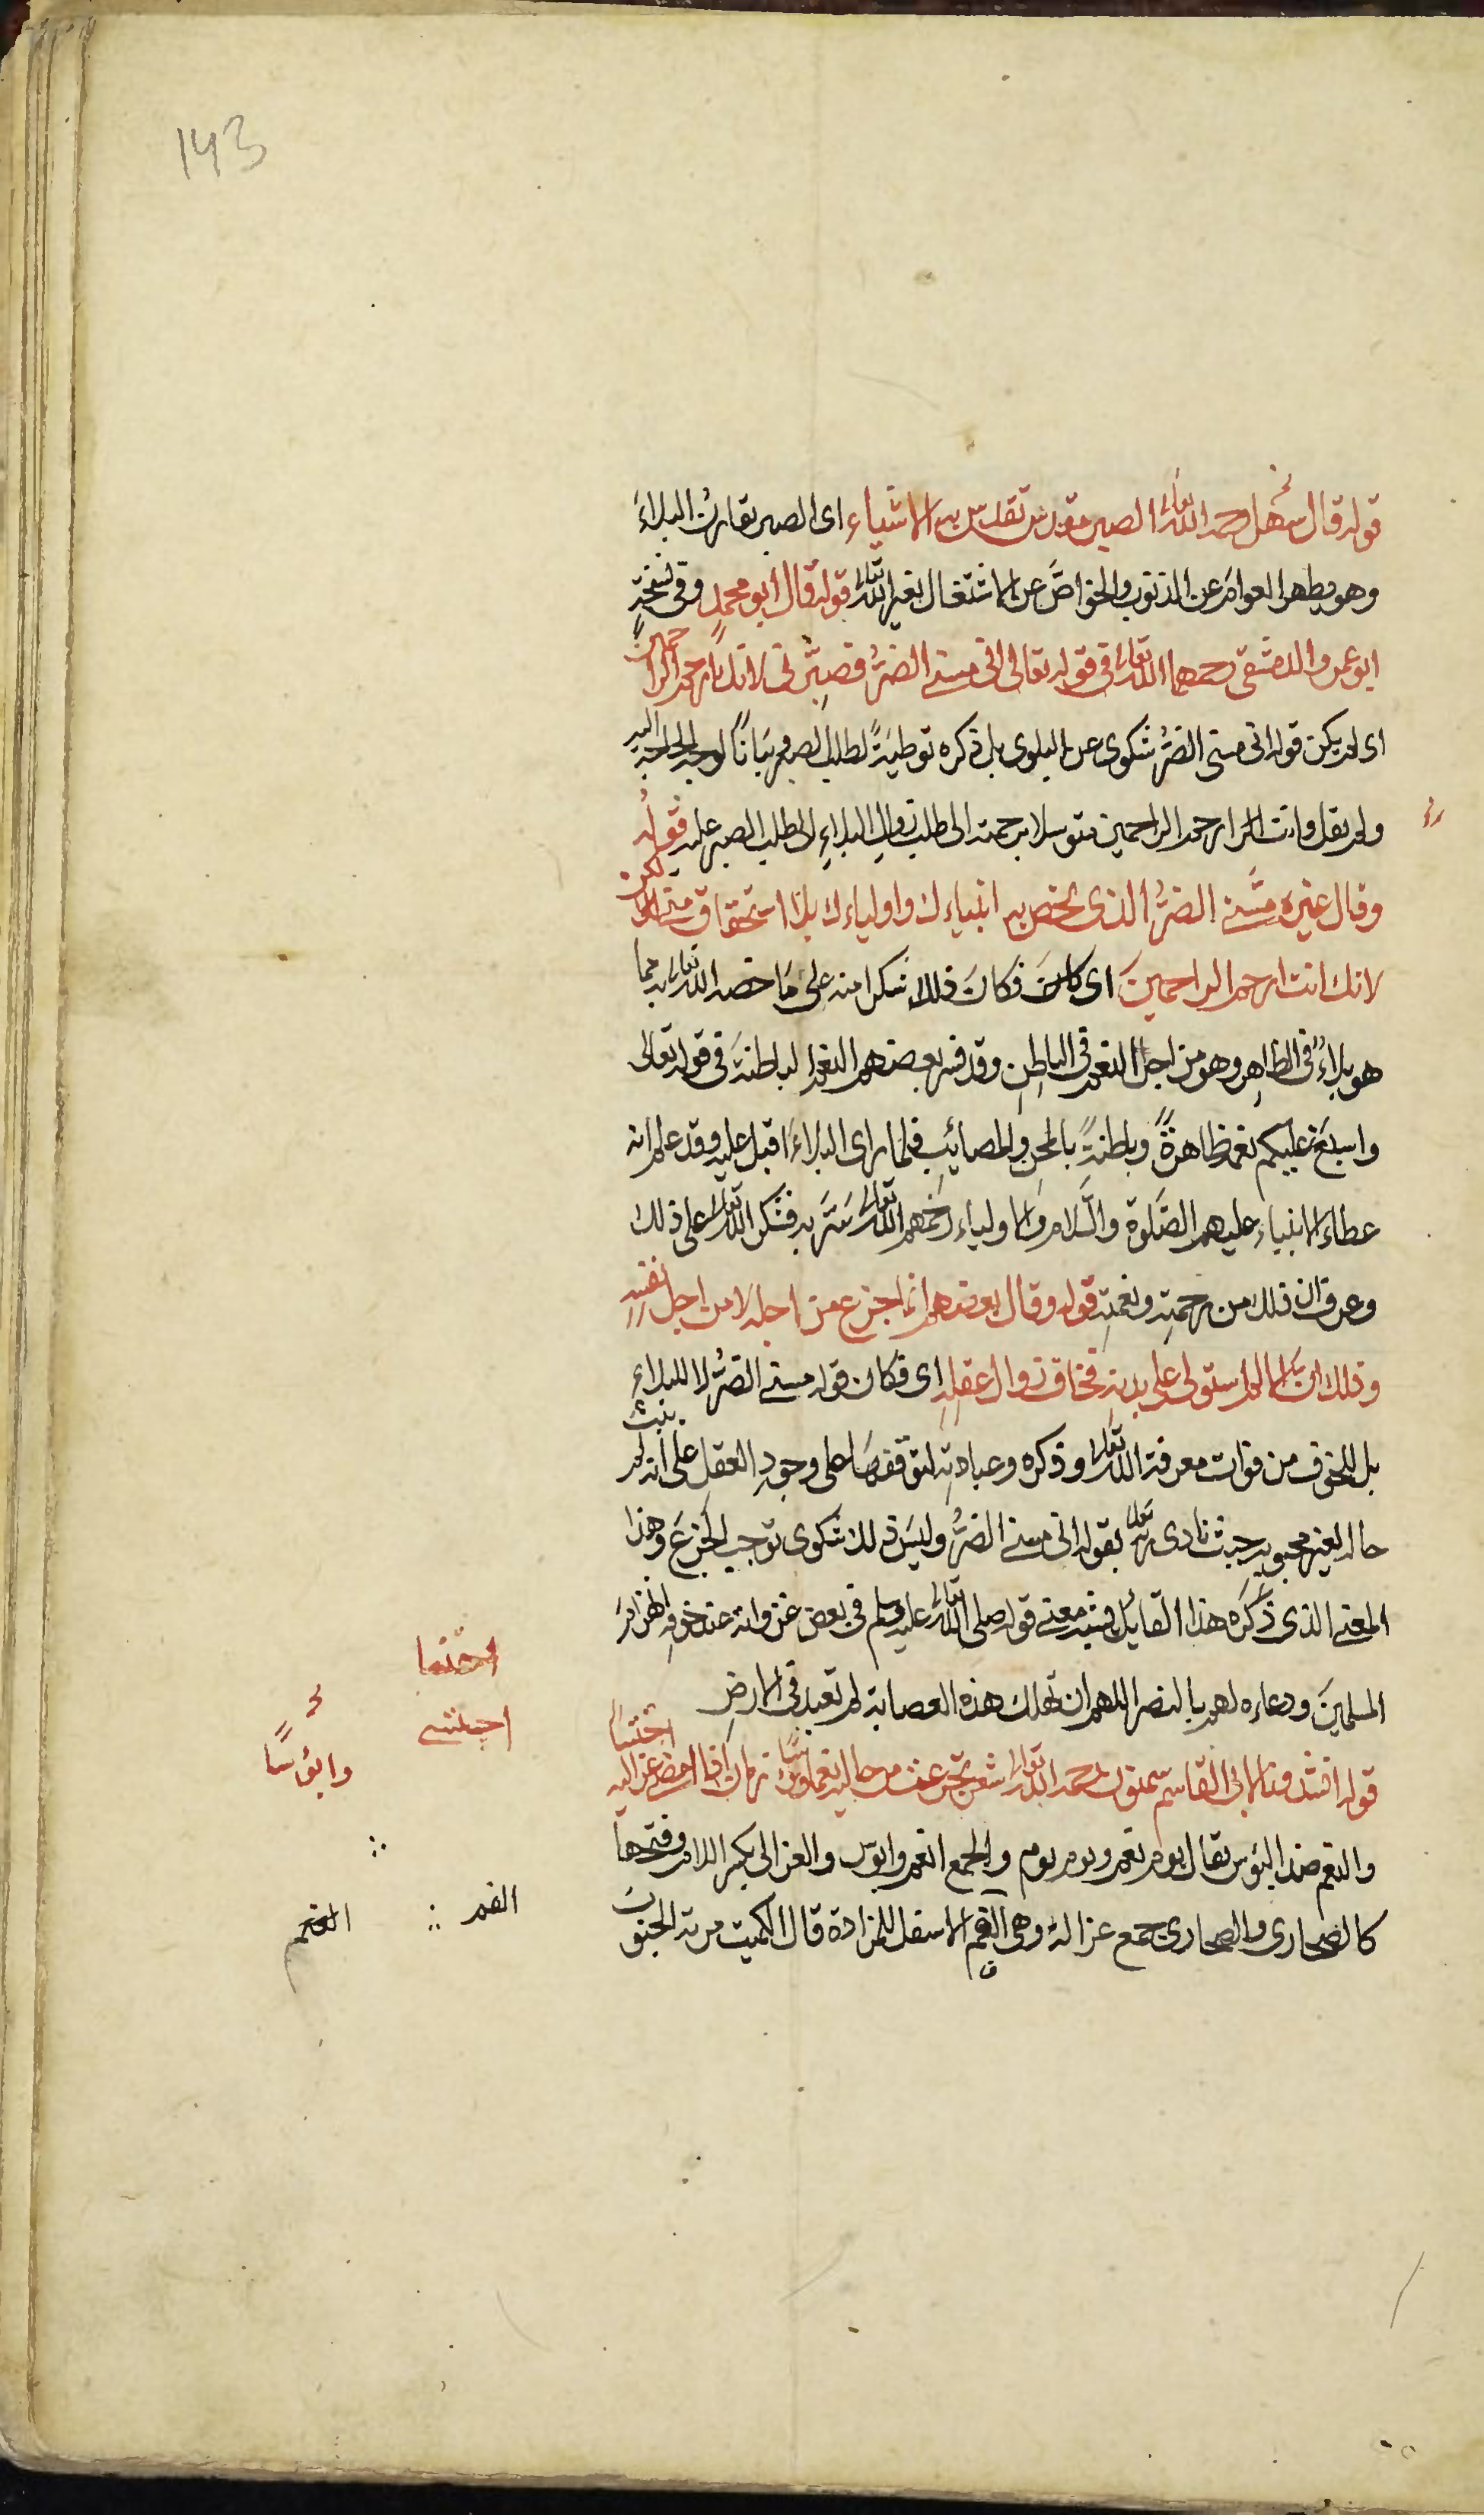 143
قوله قال سهل رحمه الله تعالى الصبر مقدس تقدس به الاشياء اى الصبر يقارن البلاء
وهو يطهر العوام عن الذنوب والخواصَّ عن الاشتغال بغير الله تعالى قوله قال ابو محمدٍ وفى نسخةٍ
ابو عمرو الدمشقى رحمهما الله تعالى فى قوله تعالى انى مسنى الضرُّ فصبِّرنى لانك ارحم الراحمين
اى لم يكن قوله انى مسنى الضرُّ شكوى عن البلوى بل ذكره توطيةً لطلب الصبر وبيانًا لوجه الحاجة اليه
ولم يقل وانت ارحم الراحمين متوسلا برحمته الى طلب زوال البلاءِ بل لطلب الصبر عليه قولُه
وقال غيره مسَّنى الضرُّ الذى تخص به انبياءك واولياءك بلا استحقاق منى لكن
لانك انت ارحم الراحمينَ اى فكانَ ذلك شكرا منه على مَا خصه الله تعالى به مما
هو بلاءٌ فى الظاهِر وهو من اجل النعم فى الباطِنِ وقد فسر بعضهم النعم الباطنةَ فى قوله تعالى
واسبغ عليكم نعمه ظاهرةً وباطنةً بالمحن والمصائبِ فلما راى البلاءَ اقبل عليه وقد علم انه
عطاء الانبياء عليهم الصَّلوة والسَّلام والاولياء رحمهم الله تعالى سَرَّ به فشكر الله تعالى على ذلك
وعرف ان ذلك من رحمتِه ونعمتِه قوله وقال بعضهم انما جزع من اجله لا من اجل نفسِه
وذلك ان الالم استولى على بدنِه فخاف زوال عقلِه اى فكان قوله مسنى الضرُّ لا للبلاءِ
بل للخوف من فوات معرفة الله تعالى وذكره وعبادتِه لتوقفهَا على وجودِ العقلِ على انه لم يثبت
حاله لغير محبوبِه حيث نادى ربه تعالى بقوله انى مسنى الضرُّ وليسَ ذلك شكوى توجب الجزعَ وهذا
المعنى الذى ذكَرَه هذا القائِل يشبه معنى قوله صلى الله تعالى عليه وسلم فى بعض غزواته عند خوفه انهزامَ
المسلمينَ ودعاءه لهم بالنصر اللهم ان تهلك هذه العصابة لم تعبد فى الارضِ
قوله انشدونا لابى القاسم سمنون رحمه الله تعالى شعر تجرعت من حاليه نعما وابؤسًا زمان اذا امضى عزاليه احتسا
والنعم ضد البؤس يقال يوم نعم ويوم بوم والجمع انعم وابؤس والعزالى بكسر اللام وفتحها
كالصحارى والصحارى جمع عزالة وهى الفم الاسفل للمزادة قال الكميت مرته الجنوبَ
احتسا
احتسى
وابؤسًا
الفم
الفم